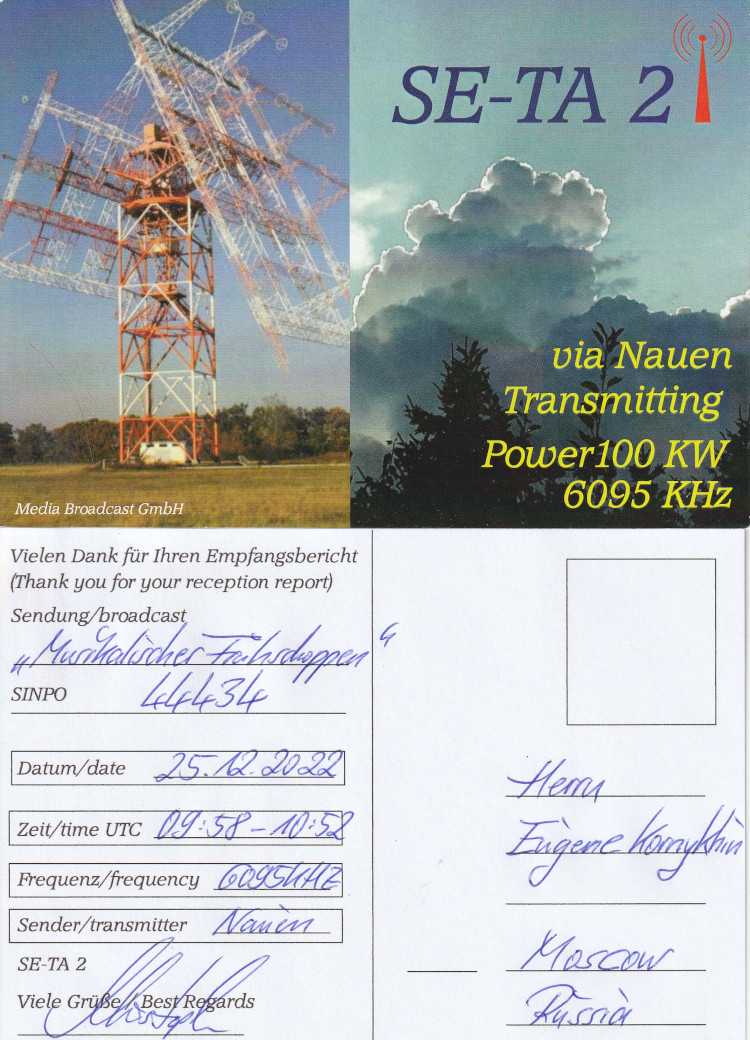 SE-TA 2
via Nauen
Transmitting
Power100 KW
6095 KHz
Media Broadcast GmbH
Vielen Dank für Ihren Empfangsbericht
(Thank you for your reception report)
Sendung/broadcast
„Musikalischer Frühschoppen“
SINPO 44434
Datum/date 25.12.2022
Zeit/time UTC 09:58 - 10:52
Frequenz/frequency 6095KHZ
Sender/transmitter Nauen
SE-TA 2
Viele Grüße / Best Regards
Christoph
Herrn
Eugene
Moscow
Russia